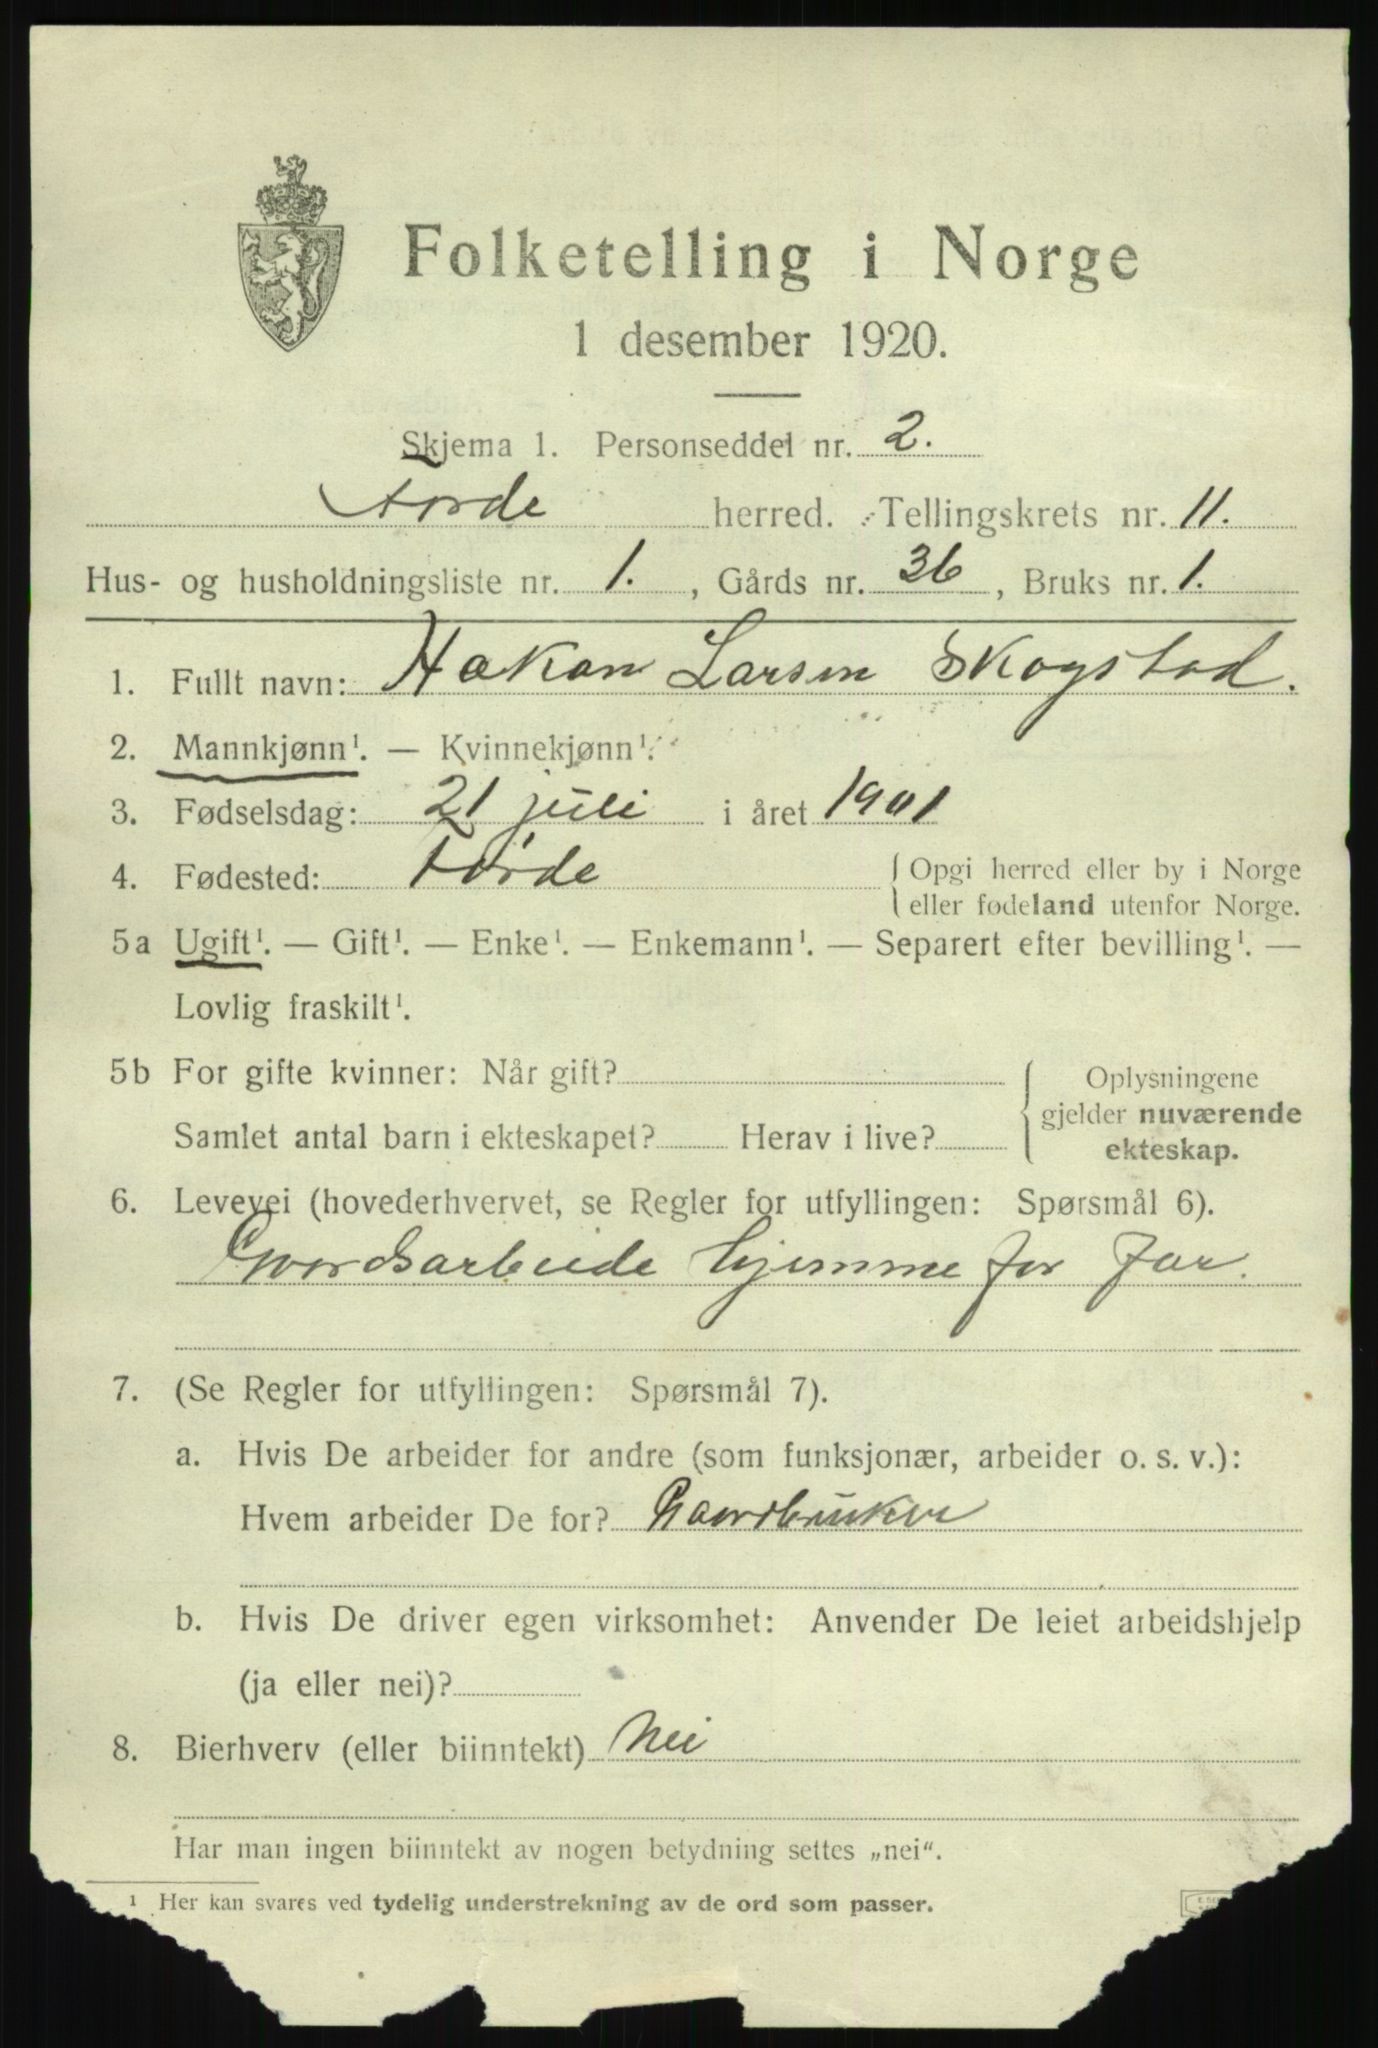 Folketelling i Norge
1 desember 1920.
Skjema 1. Personseddel nr. 2.
Førde herred. Tellingskrets nr. 11.
Hus- og husholdningsliste nr. 1., Gårds nr. 36, Bruks nr. 1.
1. Fullt navn: Hakon Larsen Skogstad.
2. Mannkjønn¹. — Kvinnekjønn¹.
3. Fødselsdag: 21 juli i året 1901
4. Fødested: Førde {Opgi herred eller by i Norge
eller fødeland utenfor Norge.
5a Ugift¹. — Gift¹. — Enke¹. — Enkemann¹. — Separert efter bevilling¹. —
Lovlig fraskilt¹.
5b For gifte kvinner: Når gift? {Oplysningene
gjelder nuværende
Samlet antal barn i ekteskapet? Herav i live? ekteskap.
6. Levevei (hovederhvervet, se Regler for utfyllingen: Spørsmål 6).
Gaardsarbeide hjemme for far.
7. (Se Regler for utfyllingen: Spørsmål 7).
a. Hvis De arbeider for andre (som funksjonær, arbeider o. s. v.):
Hvem arbeider De for? Gaardbruker
b. Hvis De driver egen virksomhet: Anvender De leiet arbeidshjelp
(ja eller nei)?
8. Bierhverv (eller biinntekt) Nei
Har man ingen biinntekt av nogen betydning settes „nei“.
¹ Her kan svares ved tydelig understrekning av de ord som passer.